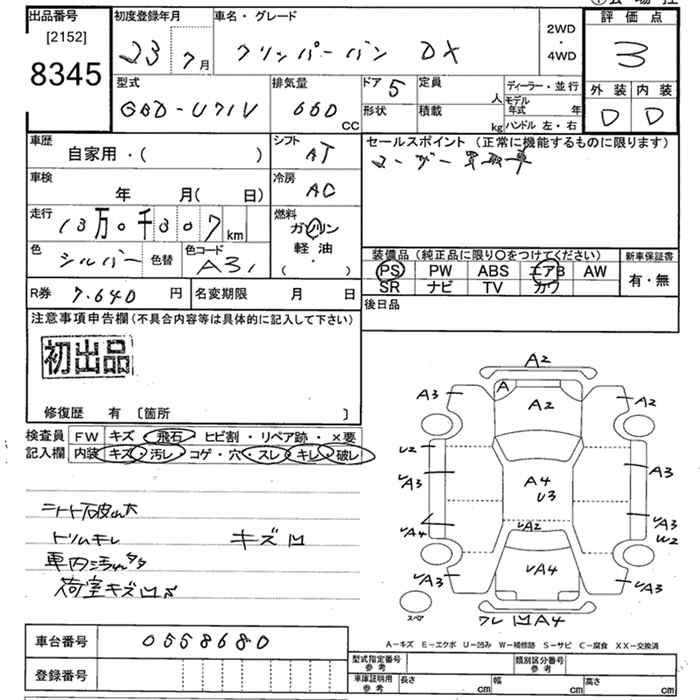 出品番号 初度登録年月 車名・グレード 2WD 評価点
[2152] 23 7月 クリッパーバン DX ・
8345 4WD 3
型式 排気量 ドア 5 定員 人 ディーラー・並行 外装 内装
GBD-U71V 660 cc 形状 積載 kg モデル年式 年 D D
ハンドル 左・右
車歴 シフト セールスポイント (正常に機能するものに限ります)
自家用・( ) AT ユーザー買取車
車検 冷房
年 月( 日) AC
走行 13万0千307km 燃料
ガソリン
軽油
( ・ )
色 シルバー 色替 色コード A31
装備品 (純正品に限り○をつけてください) 新車保証書
PS PW ABS エアB AW 有・無
SR ナビ TV カワ
R券 7.640 円 名変期限 月 日 後日品
注意事項申告欄(不具合内容等は具体的に記入して下さい)
初出品
修復歴 有 〔箇所 〕
検査員 FW キズ 飛石 ヒビ割・リペア跡・×要
記入欄 内装 キズ・汚レ・コゲ・穴・スレ・キレ・破レ
シート破れ大
トリムキレ キズ凹
車内汚れ
荷室キズ凹
A2
A3 A A2 A2
U2 A3
A4
U3
A3
A3
A4 A2 A3
W2
A3 A4 A3
スペア ワレ 凹 A4
A-キズ E-エクボ U-凹み W-補修跡 S-サビ C-腐食 XX-交換済
車台番号 0558680
登録番号
型式指定番号 参考 類別区分番号 参考
車庫証明用 参考 長さ cm 幅 cm 高さ cm